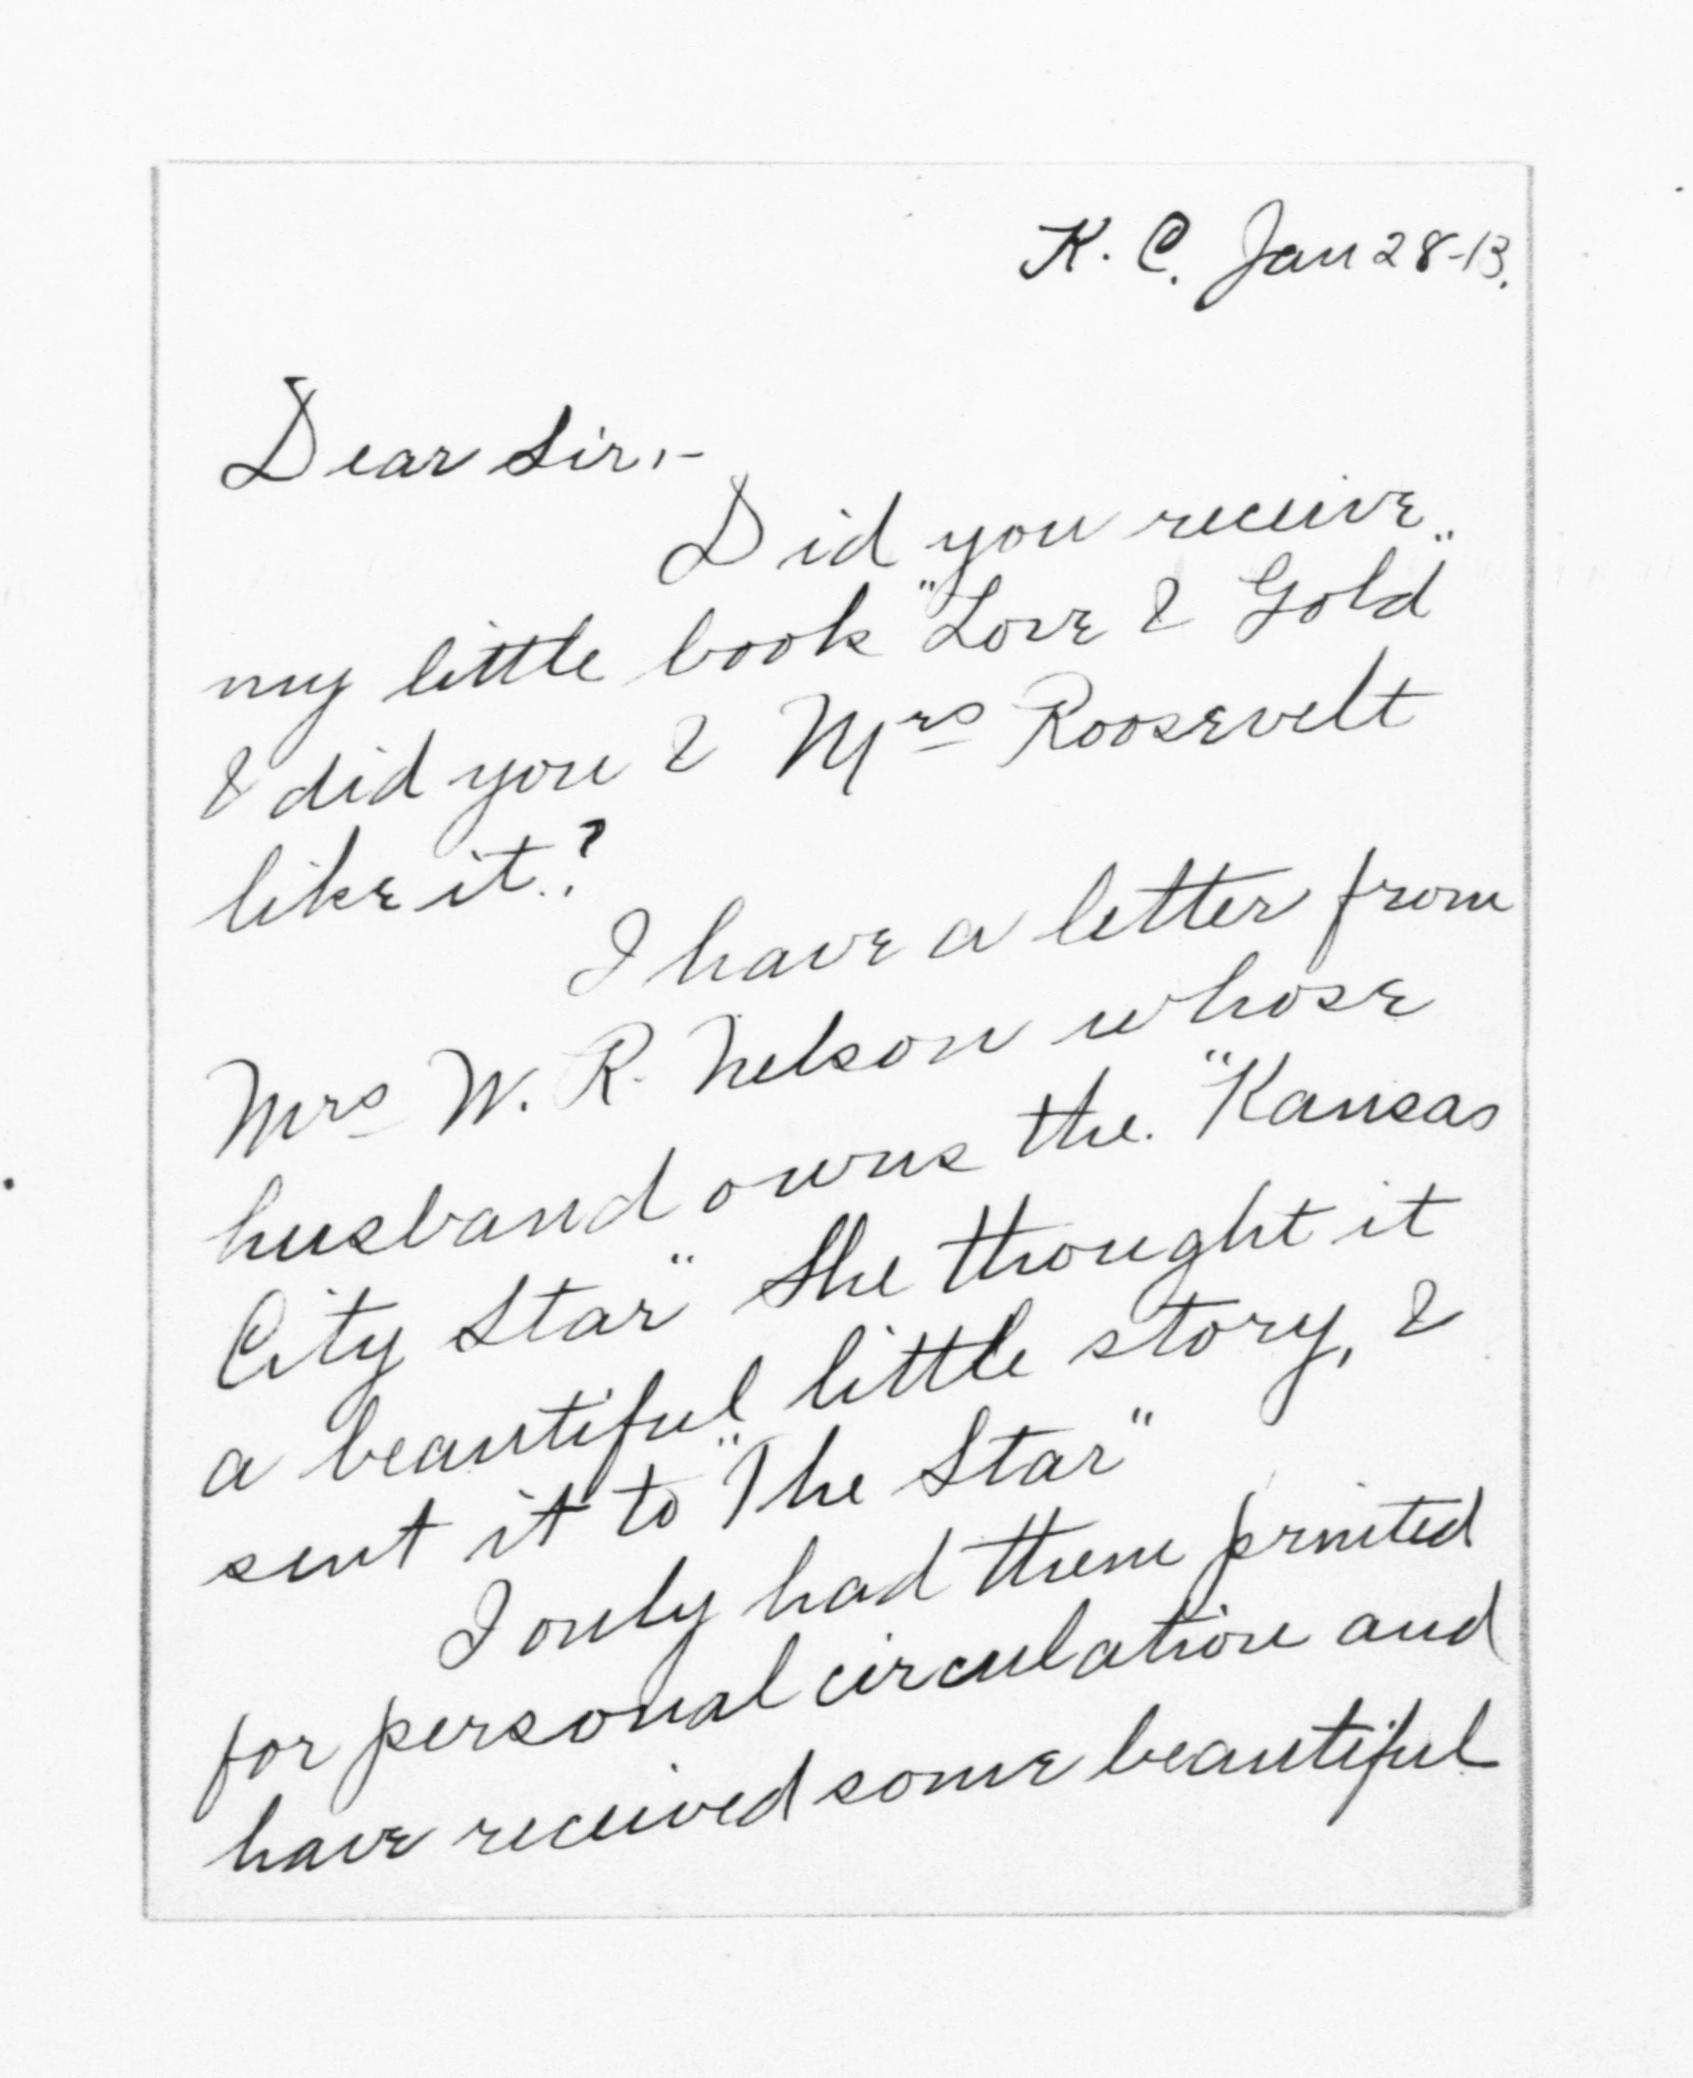 K. C. Jan 28-13.
Dear Sir,-
Did you receive
my little book "Love & Gold"
& did you & Mrs Roosevelt
like it.?
I have a letter from
Mrs W. R. Nelson whose
husband owns the. "Kansas
City Star" She thought it
a beautiful little story, &
sent it to "The Star"
I only had them printed
for personal circulation and
have received some beautiful